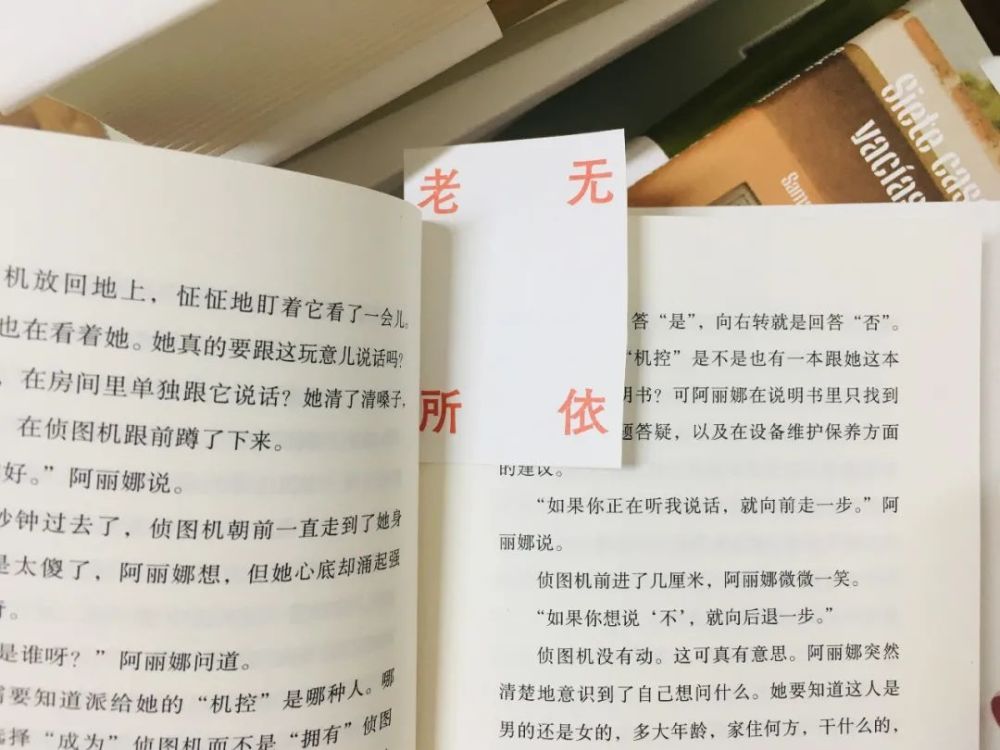 Siete cas
vacías
Sam
老 无
所 依
机放回地上，怔怔地盯着它看了一会儿。
也在看着她。她真的要跟这玩意儿说话吗？
，在房间里单独跟它说话？她清了清嗓子，
在侦图机跟前蹲了下来。
好。”阿丽娜说。
秒钟过去了，侦图机朝前一直走到了她身
是太傻了，阿丽娜想，但她心底却涌起强
是谁呀？”阿丽娜问道。
需要知道派给她的“机控”是哪种人。哪
选择“成为”侦图机而不是“拥有”侦图
答“是”，向右转就是回答“否”。
“机控”是不是也有一本跟她这本
明书？可阿丽娜在说明书里只找到
题答疑，以及在设备维护保养方面
的建议。
“如果你正在听我说话，就向前走一步。”阿
丽娜说。
侦图机前进了几厘米，阿丽娜微微一笑。
“如果你想说‘不’，就向后退一步。”
侦图机没有动。这可真有意思。阿丽娜突然
清楚地意识到了自己想问什么。她要知道这人是
男的还是女的，多大年龄，家住何方，干什么的，